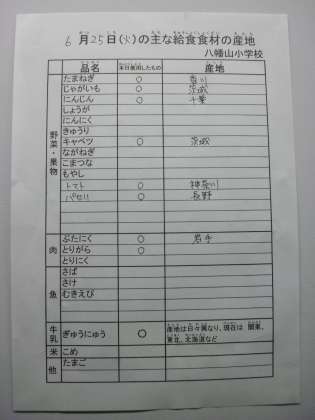 6月25日(火)の主な給食食材の産地
八幡山小学校
品名 本日使用したもの 産地
野菜・果物
たまねぎ ○ 香川
じゃがいも ○ 茨城
にんじん ○ 千葉
しょうが
にんにく
きゅうり
キャベツ ○ 茨城
ながねぎ
こまつな
もやし
トマト ○ 神奈川
パセリ ○ 長野
肉
ぶたにく ○ 岩手
とりがら ○
とりにく
魚
さば
さけ
むきえび
牛乳 ぎゅうにゅう ○ 産地は日々異なり、現在は 関東、
東北、北海道など
米 こめ
他 たまご